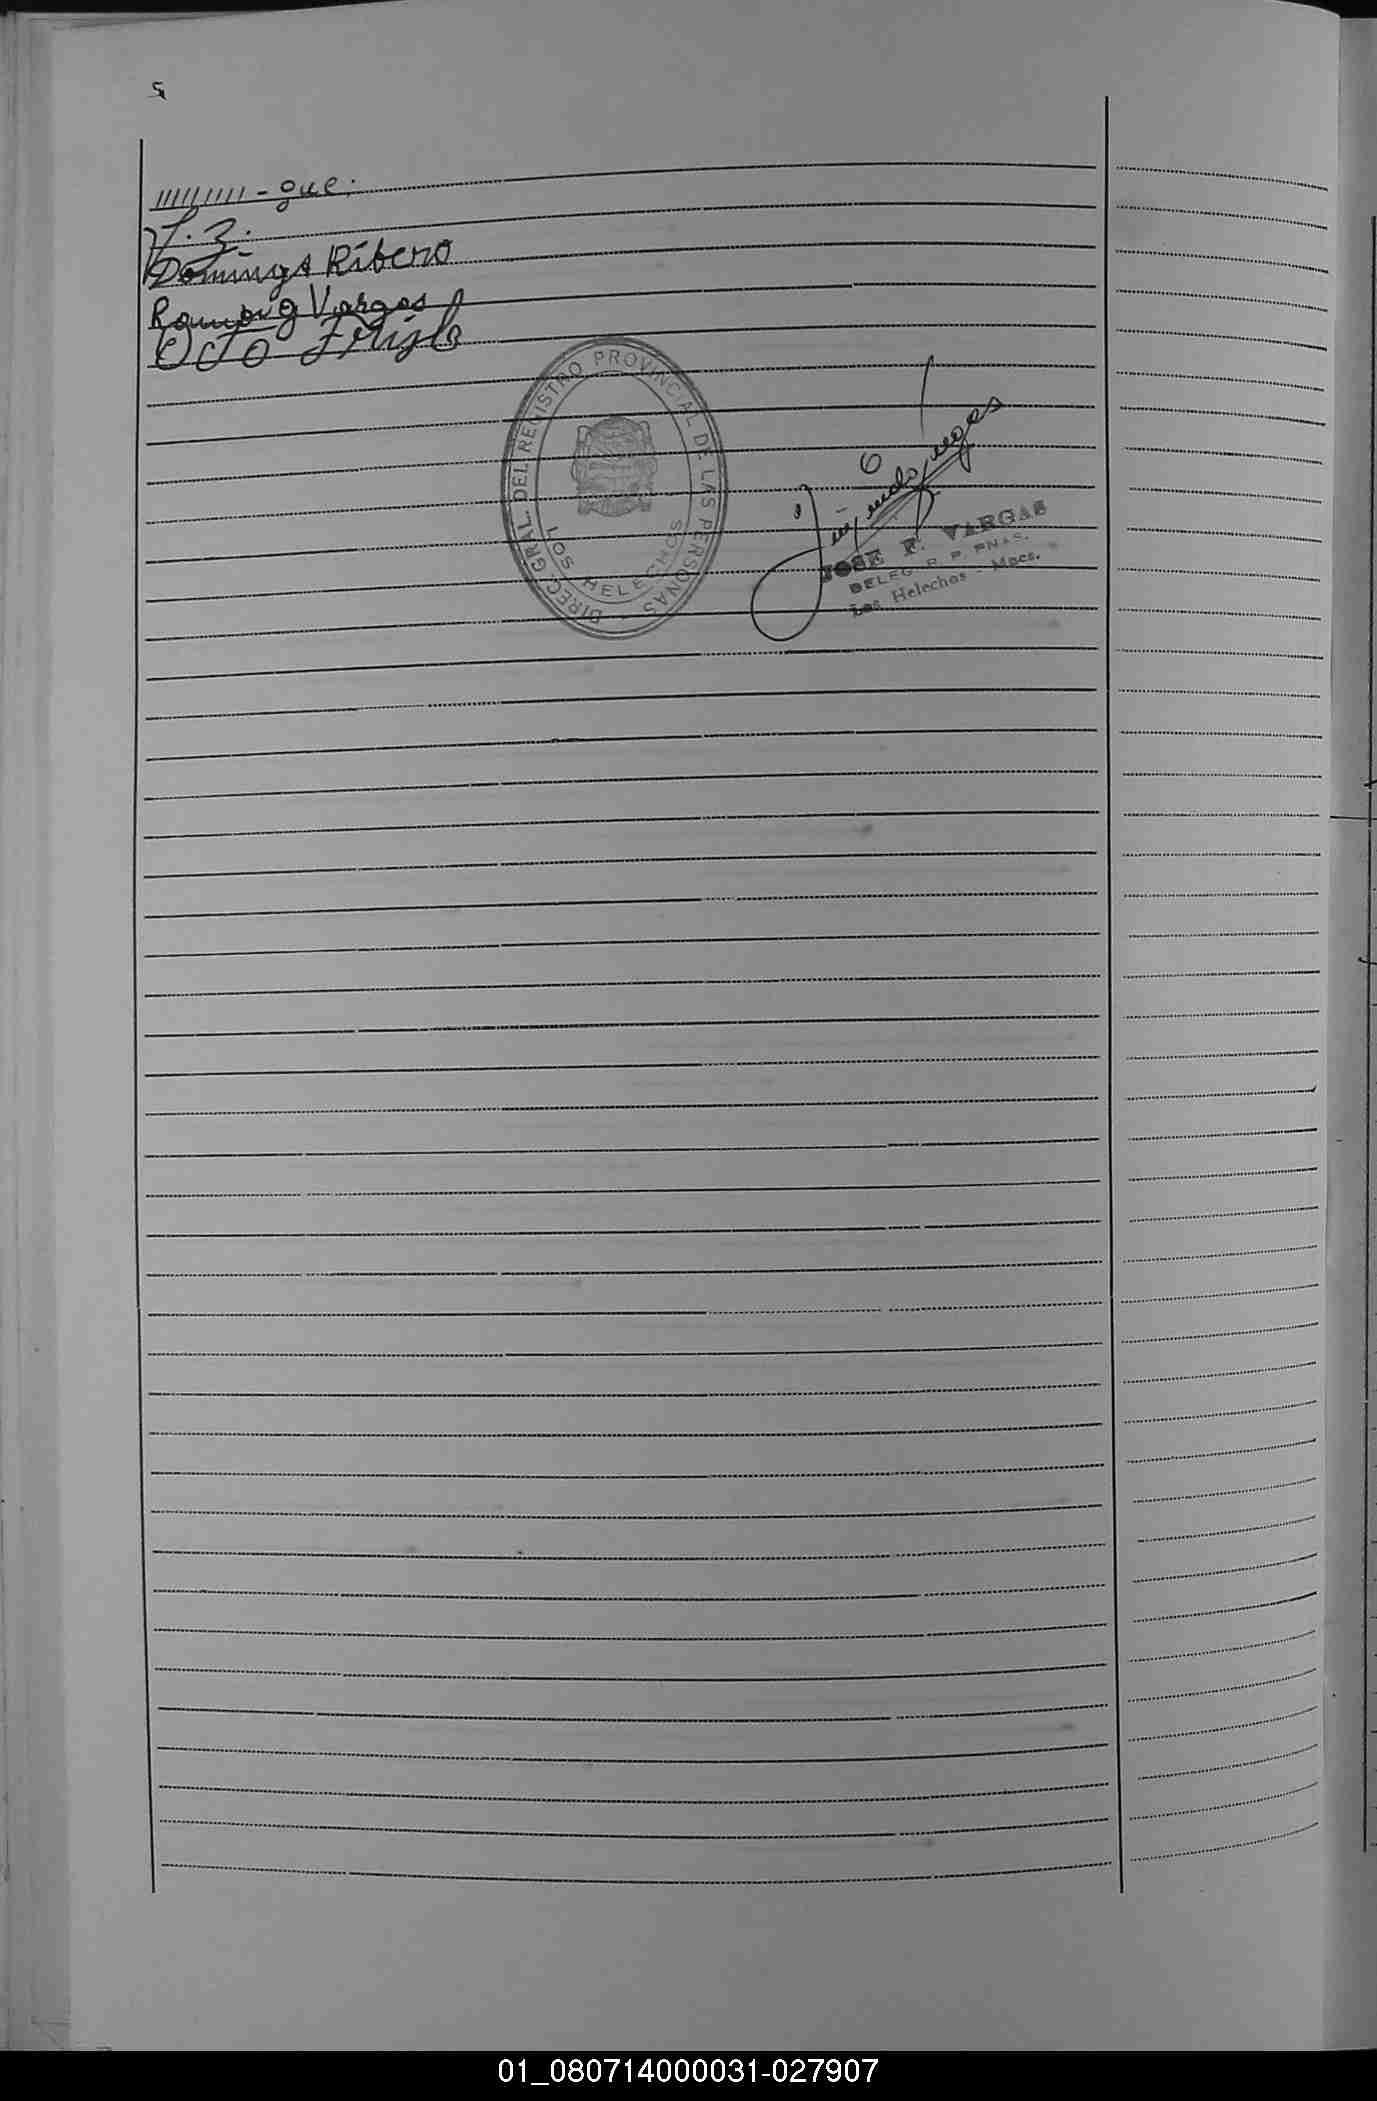 5
////////// - que:
Domingo Ribero
Ramong Vargas
Oto
DIREC. GRAL. DEL REGISTRO PROVINCIAL DE LAS PERSONAS
LOS HELECHOS
JOSE F. VARGAS
DELEG. R. P. PNAS.
Los Helechos - Mnes.
01_080714000031-027907